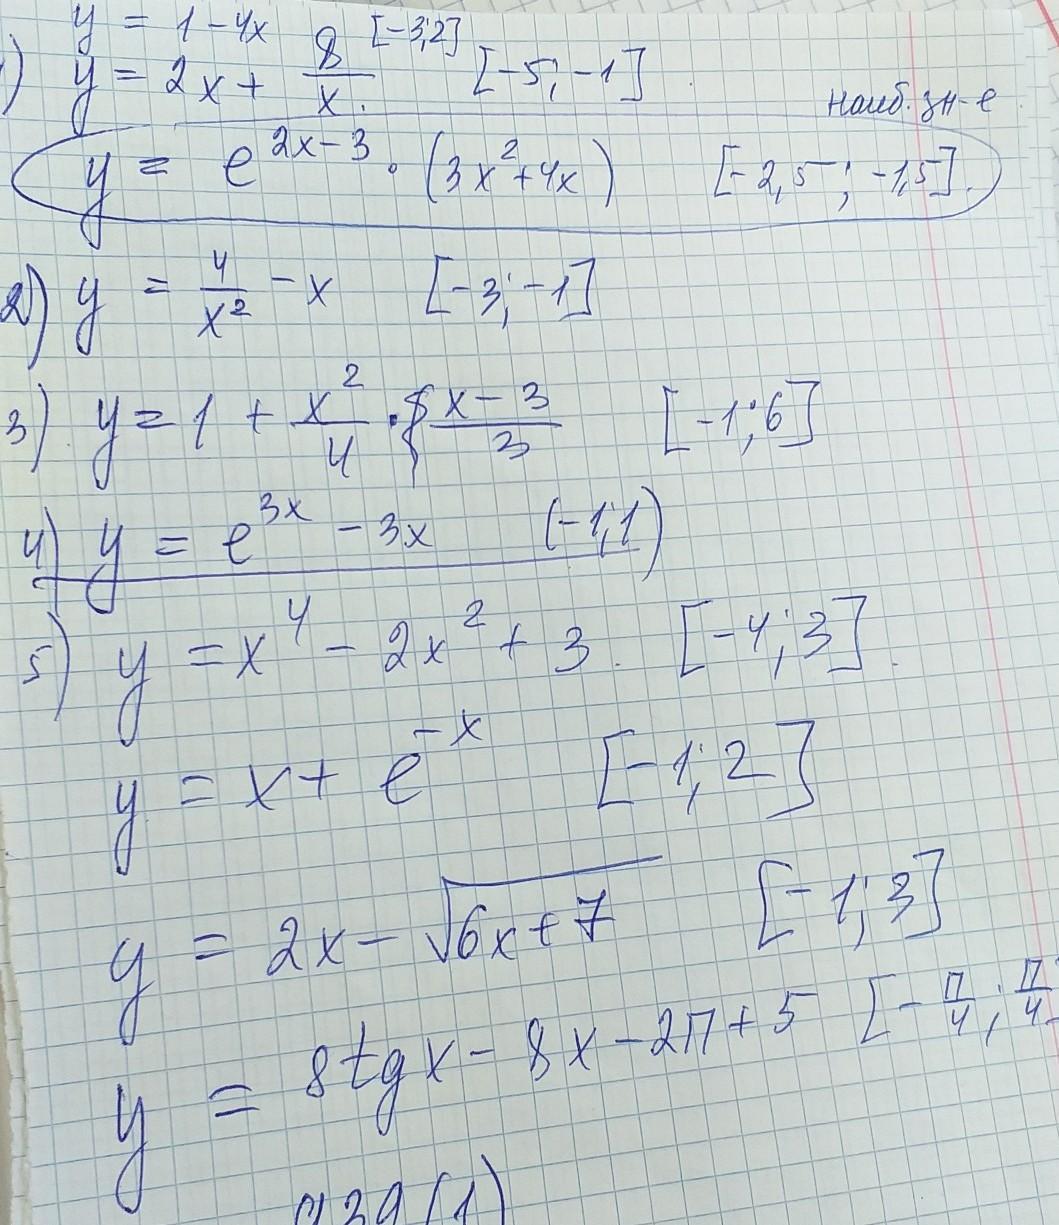 y = 1 - 4x [-3;2]
1) y = 2x + 8/x [-5; -1]
наиб. зн-е
y = e^(2x-3) · (3x² + 4x) [-2,5; -1,5].
2) y = 4/x² - x [-3; -1]
3) y = 1 + x²/4 · (x-3)/3 [-1; 6]
4) y = e^(3x) - 3x (-1;1)
5) y = x⁴ - 2x² + 3. [-4; 3].
y = x + e^(-x) [-1; 2]
y = 2x - √(6x+7) [-1; 3]
y = 8tgx - 8x - 2π + 5 [-π/4; π/4
939(1)